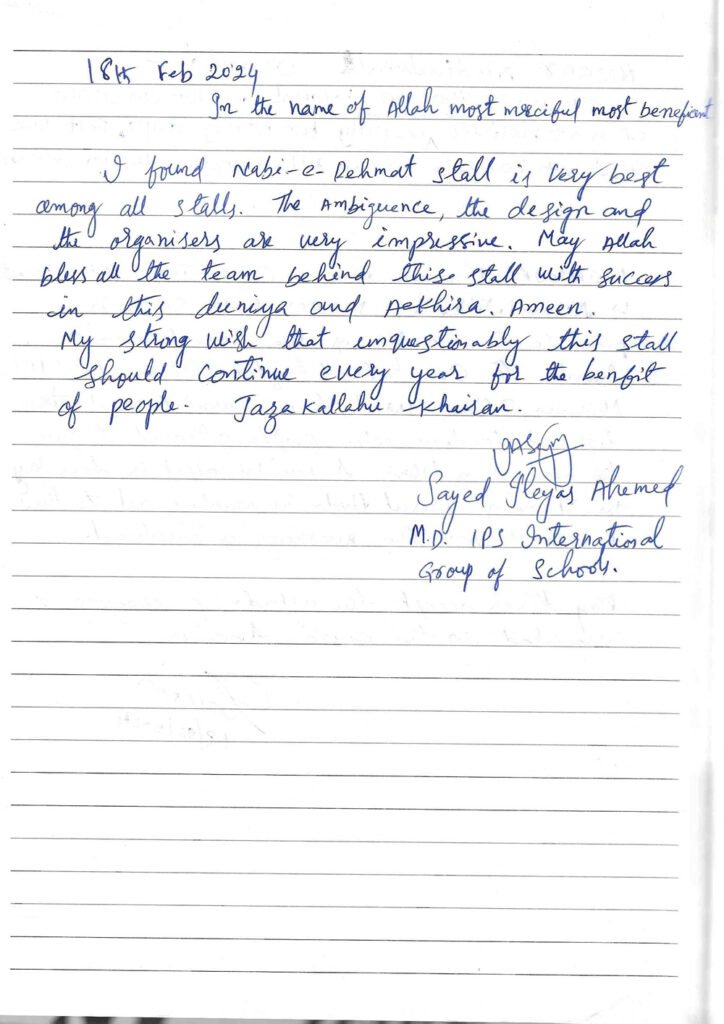 18th Feb 2024
In the name of Allah most merciful most beneficent
I found Nabi-e-Rehmat stall is very best
among all stalls. The Ambiguence, the design and
the organisers are very impressive. May Allah
bless all the team behind this stall with success
in this duniya and Aekhira. Ameen.
My strong wish that unquestionably this stall
should continue every year for the benfit
of people. Jaza kallahu khairan.
Sayed Ileyas Ahemed
M.D. IPS International
Group of Schools.